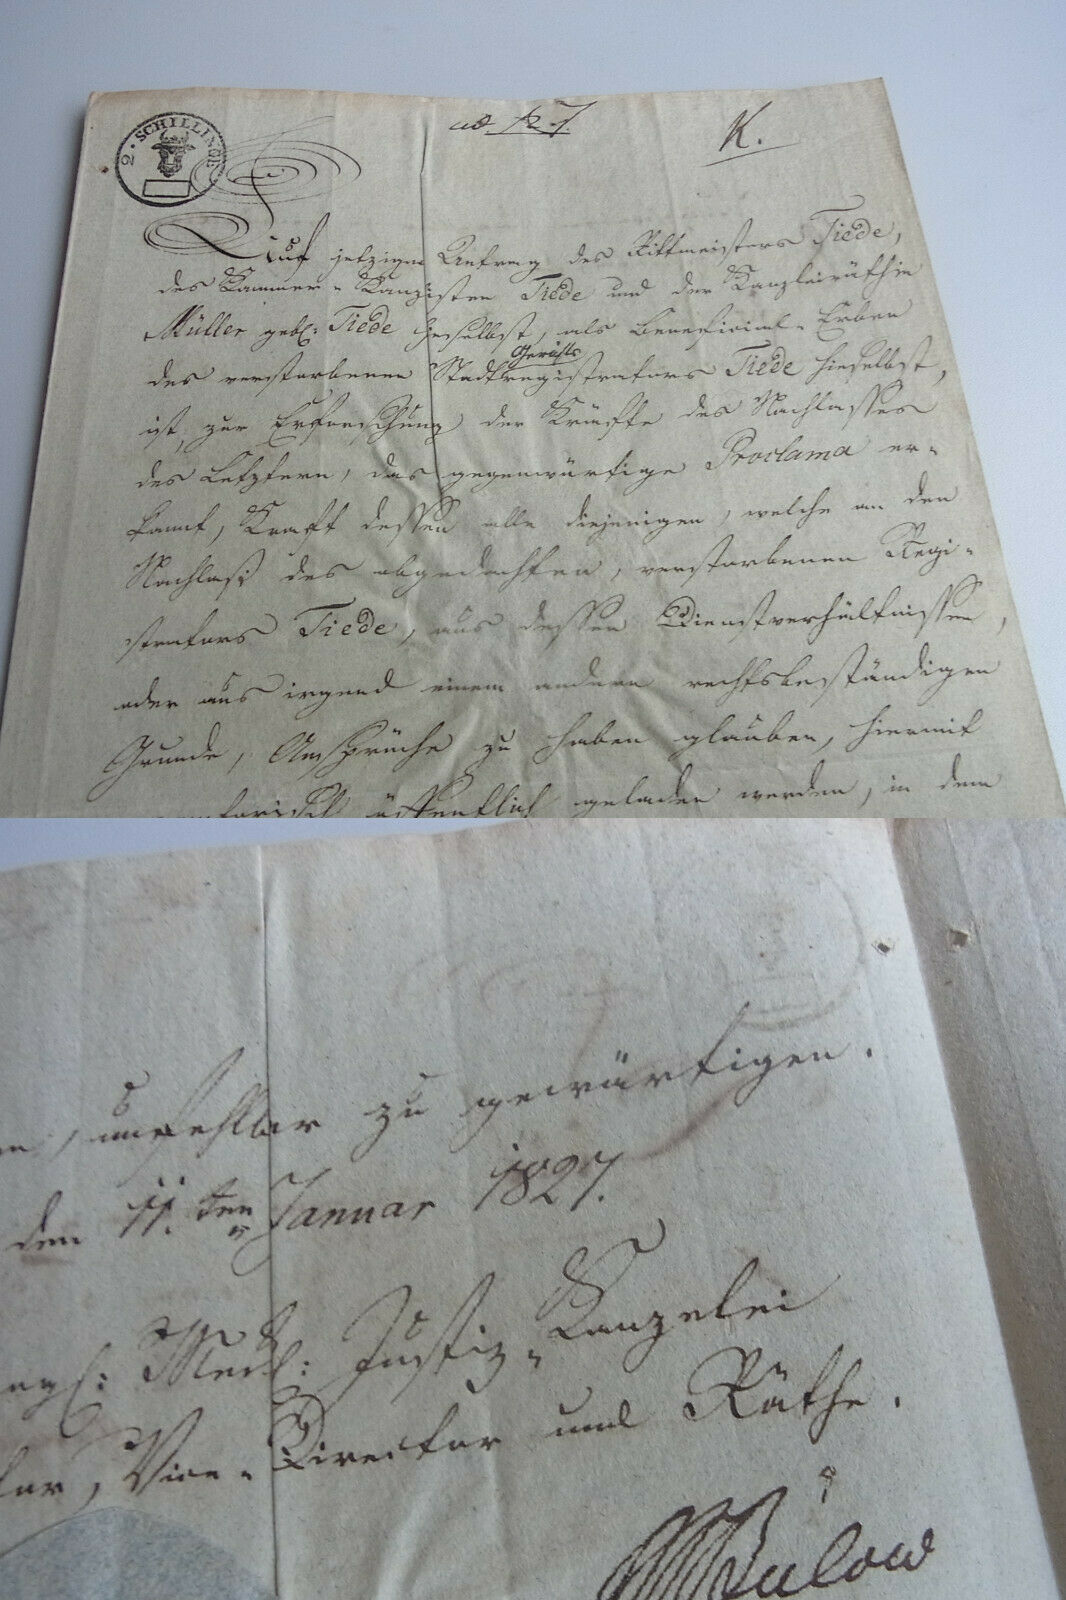 2 · SCHILLINGE
K.
Auf jetzigen Antrag des Rittmeisters Tiede,
des Kammer-Kanzlisten Tiede und der Kanzleiräthin
Müller geb: Tiede hieselbst, als Beneficial-Erben
des verstorbenen Stadtgerichtsregistrators Tiede hieselbst,
ist, zur Erforschung der Kräfte des Nachlasses
des Letztern, das gegenwärtige Proclama er-
kannt, Kraft dessen alle diejenigen, welche an den
Nachlaß des abgedachten, verstorbenen Regi-
strators Tiede, aus dessen Dienstverhältnissen,
oder aus irgend einem andern rechtsbeständigen
Grunde, Ansprüche zu haben glauben, hiermit
öffentlich geladen werden, in dem
unfehlbar zu gewärtigen.
den 11. ten Januar 1827.
Meckl: Justiz-Kanzelei
Vice-Director und Räthe.
Bülow